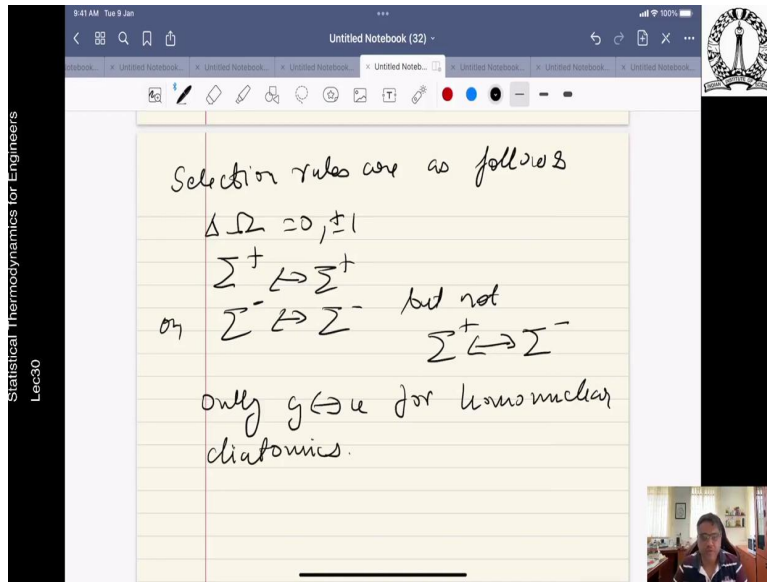 9:41 AM Tue 9 Jan
100%
Untitled Notebook (32)
Untitled Notebook...
Untitled Notebook...
Untitled Notebook...
Untitled Noteb...
Untitled Notebook...
Untitled Notebook...
Untitled Notebook...
Statistical Thermodynamics for Engineers
Lec30
Selection rules are as follows
ΔΩ = 0, ±1
Σ⁺ ↔ Σ⁺
or Σ⁻ ↔ Σ⁻ but not
Σ⁺ ↔ Σ⁻
only g ↔ u for homonuclear
diatomics.